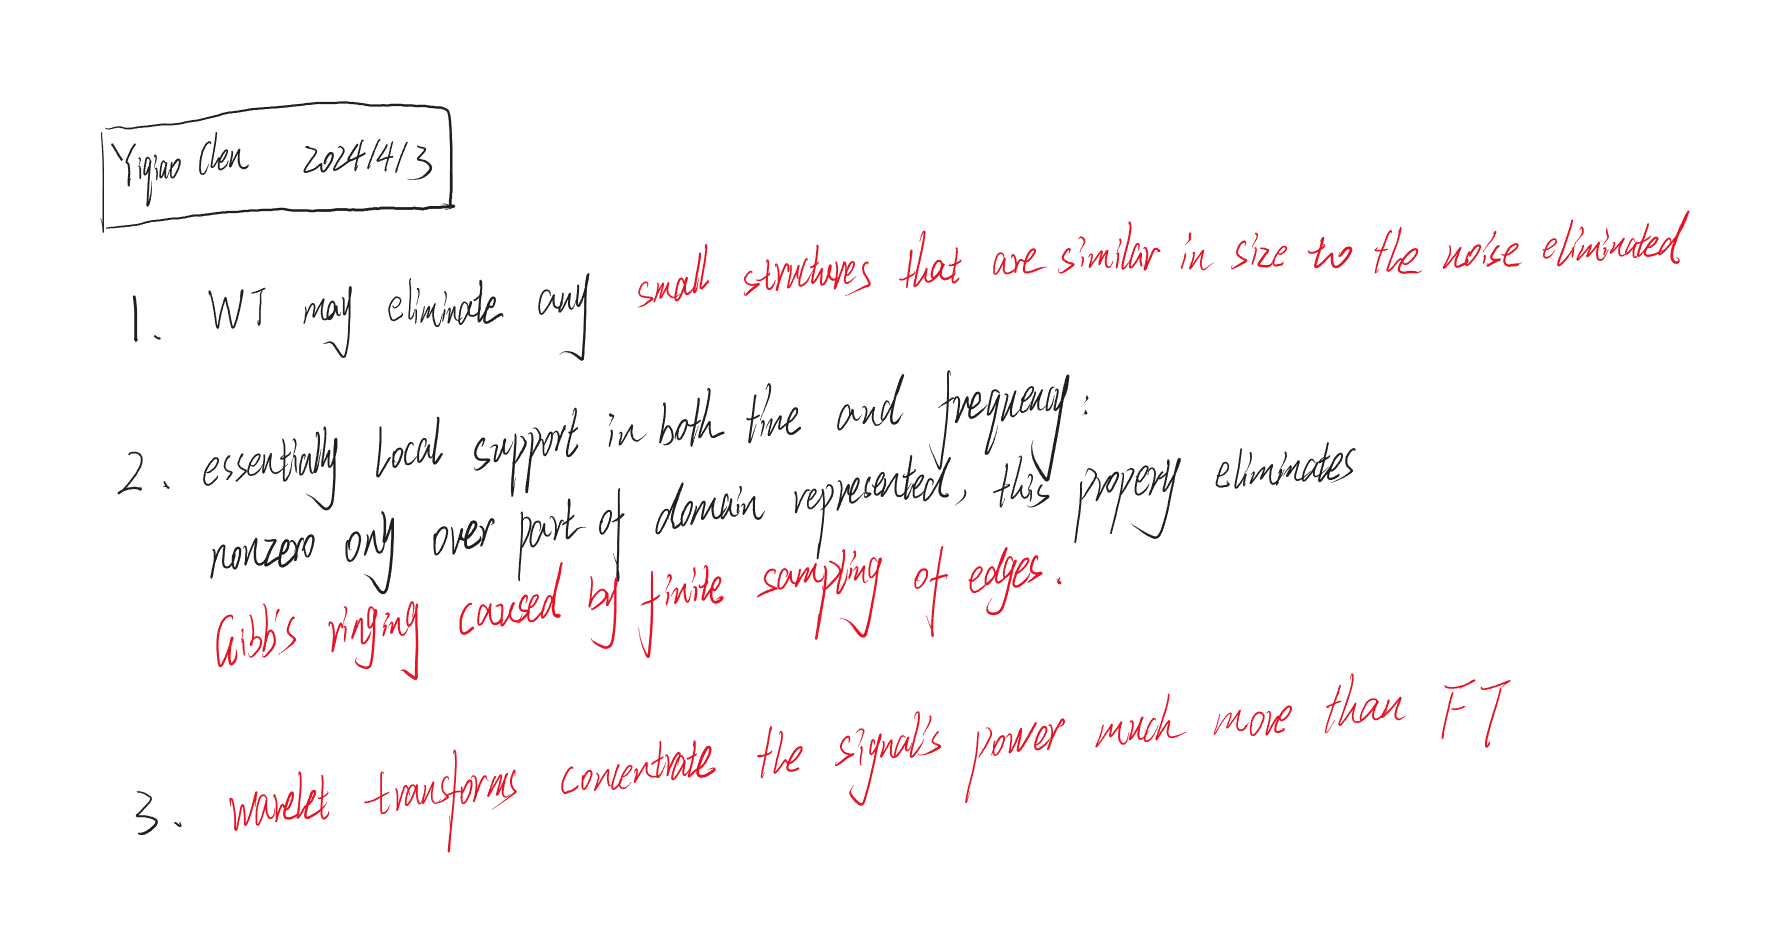 Yiqiao Chen 2024/4/3
1. WT may eliminate any small structures that are similar in size to the noise eliminated
2. essentially local support in both time and frequency:
nonzero ony over part of domain represented, this propery eliminates
Gibb's ringing caused by finite sampling of edges.
3. wavelet transforms concentrate the signal's power much more than FT